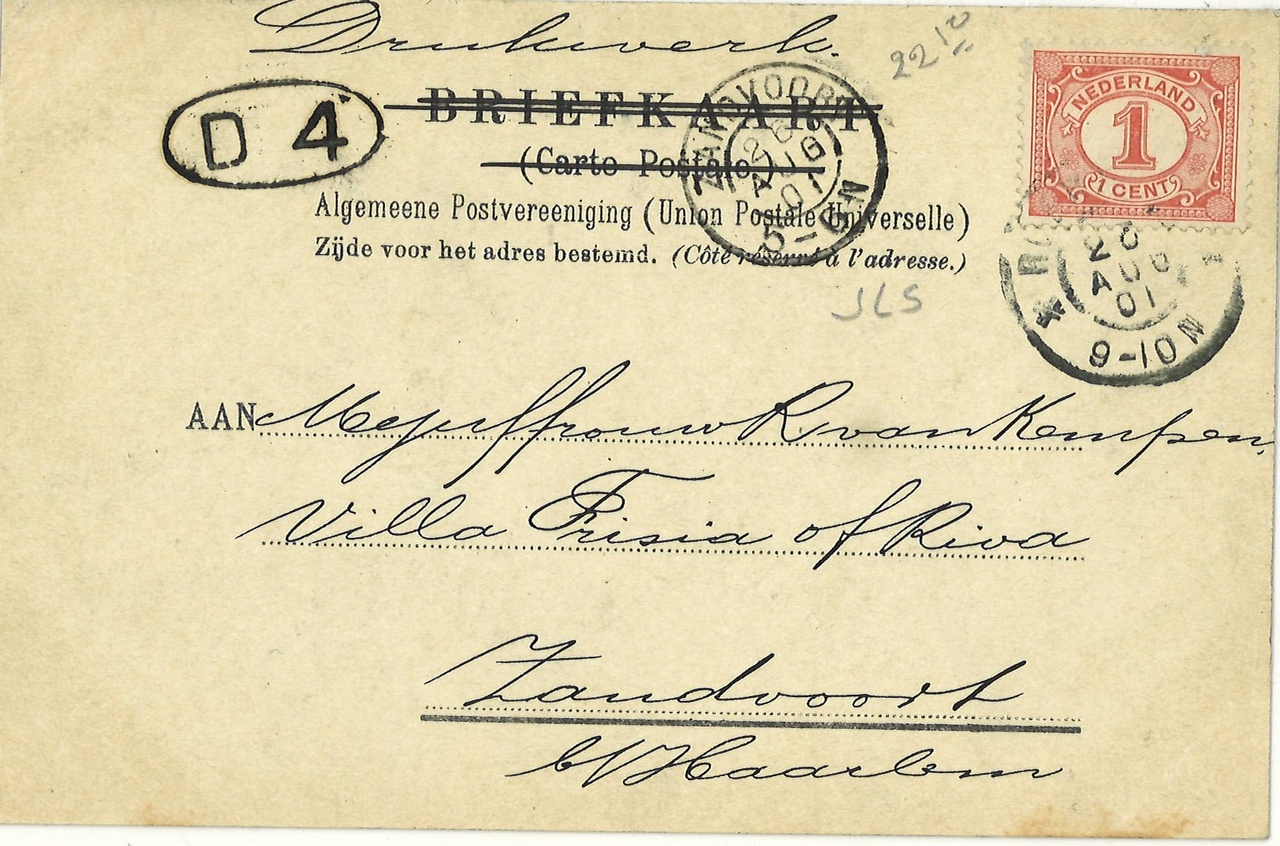 Drukwerk.
2210
NEDERLAND
1
1 CENT
D 4
BRIEFKAART
(Carte Postale)
ZANDVOORT
20
AUG
01
5-6N
Algemeene Postvereeniging (Union Postale Universelle)
Zijde voor het adres bestemd. (Côté réservé à l'adresse.)
20
AUG
01
9-10N
JLS
AAN Mejuffrouw R van Kempen,
Villa Frisia of Riva
Zandvoort
b/Haarlem